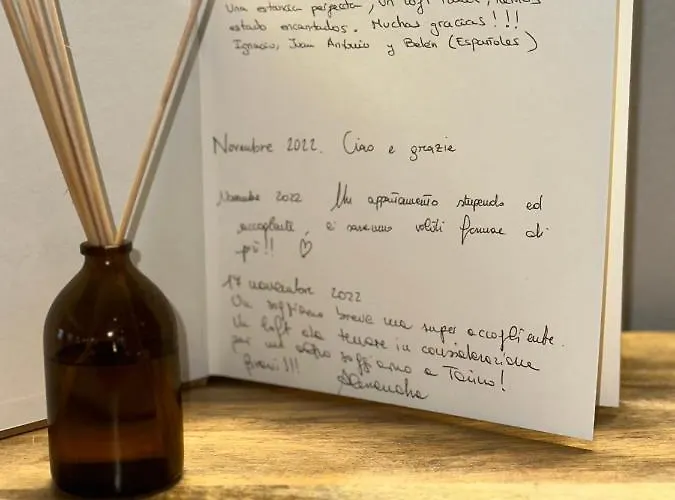 Una estancia perfecta, un loft ideal, hemos
estado encantados. Muchas gracias!!!
Ignacio, Juan Antonio y Belén (Españoles)
Novembre 2022. Ciao e grazie
Novembre 2022 Un appartamento stupendo ed
accogliente, ci saremmo voluti fermare di
più!! ♡
17 novembre 2022
Un soggiorno breve ma super accogliente.
Un loft da tenere in considerazione
per un altro soggiorno a Torino!
Bravi!!!